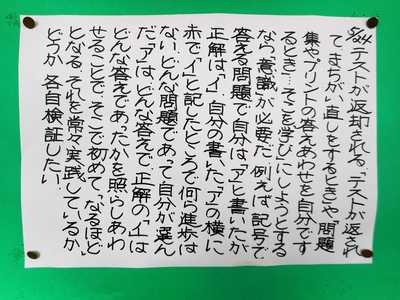 5/24 テストが返却される。「テストが返され
て、まちがい直しをするとき」や「問題
集やプリントの答えあわせを自分です
るとき」…そこを「学び」にしようとする
なら、意識が必要だ。例えば、記号で
答える問題で自分は「ア」と書いたが
正解は「イ」。自分の書いた「ア」の横に
赤で「イ」と記したところで何ら進歩は
ない。どんな問題であって自分が選ん
だ「ア」はどんな答えで正解の「イ」は
どんな答えであったかを照らしあわ
せることで、そこで初めて、「なるほど」
となる。それを常々実践しているか
どうか、各自検証したい。